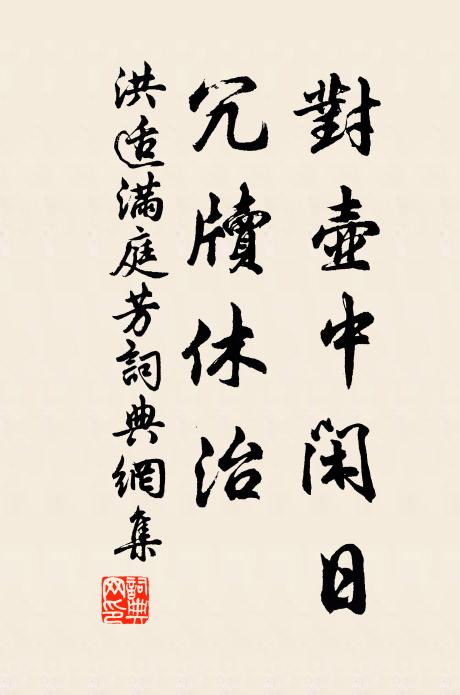 對壺中闲日
冗牘休治
洪适满庭芳詞典網集
詞典网印